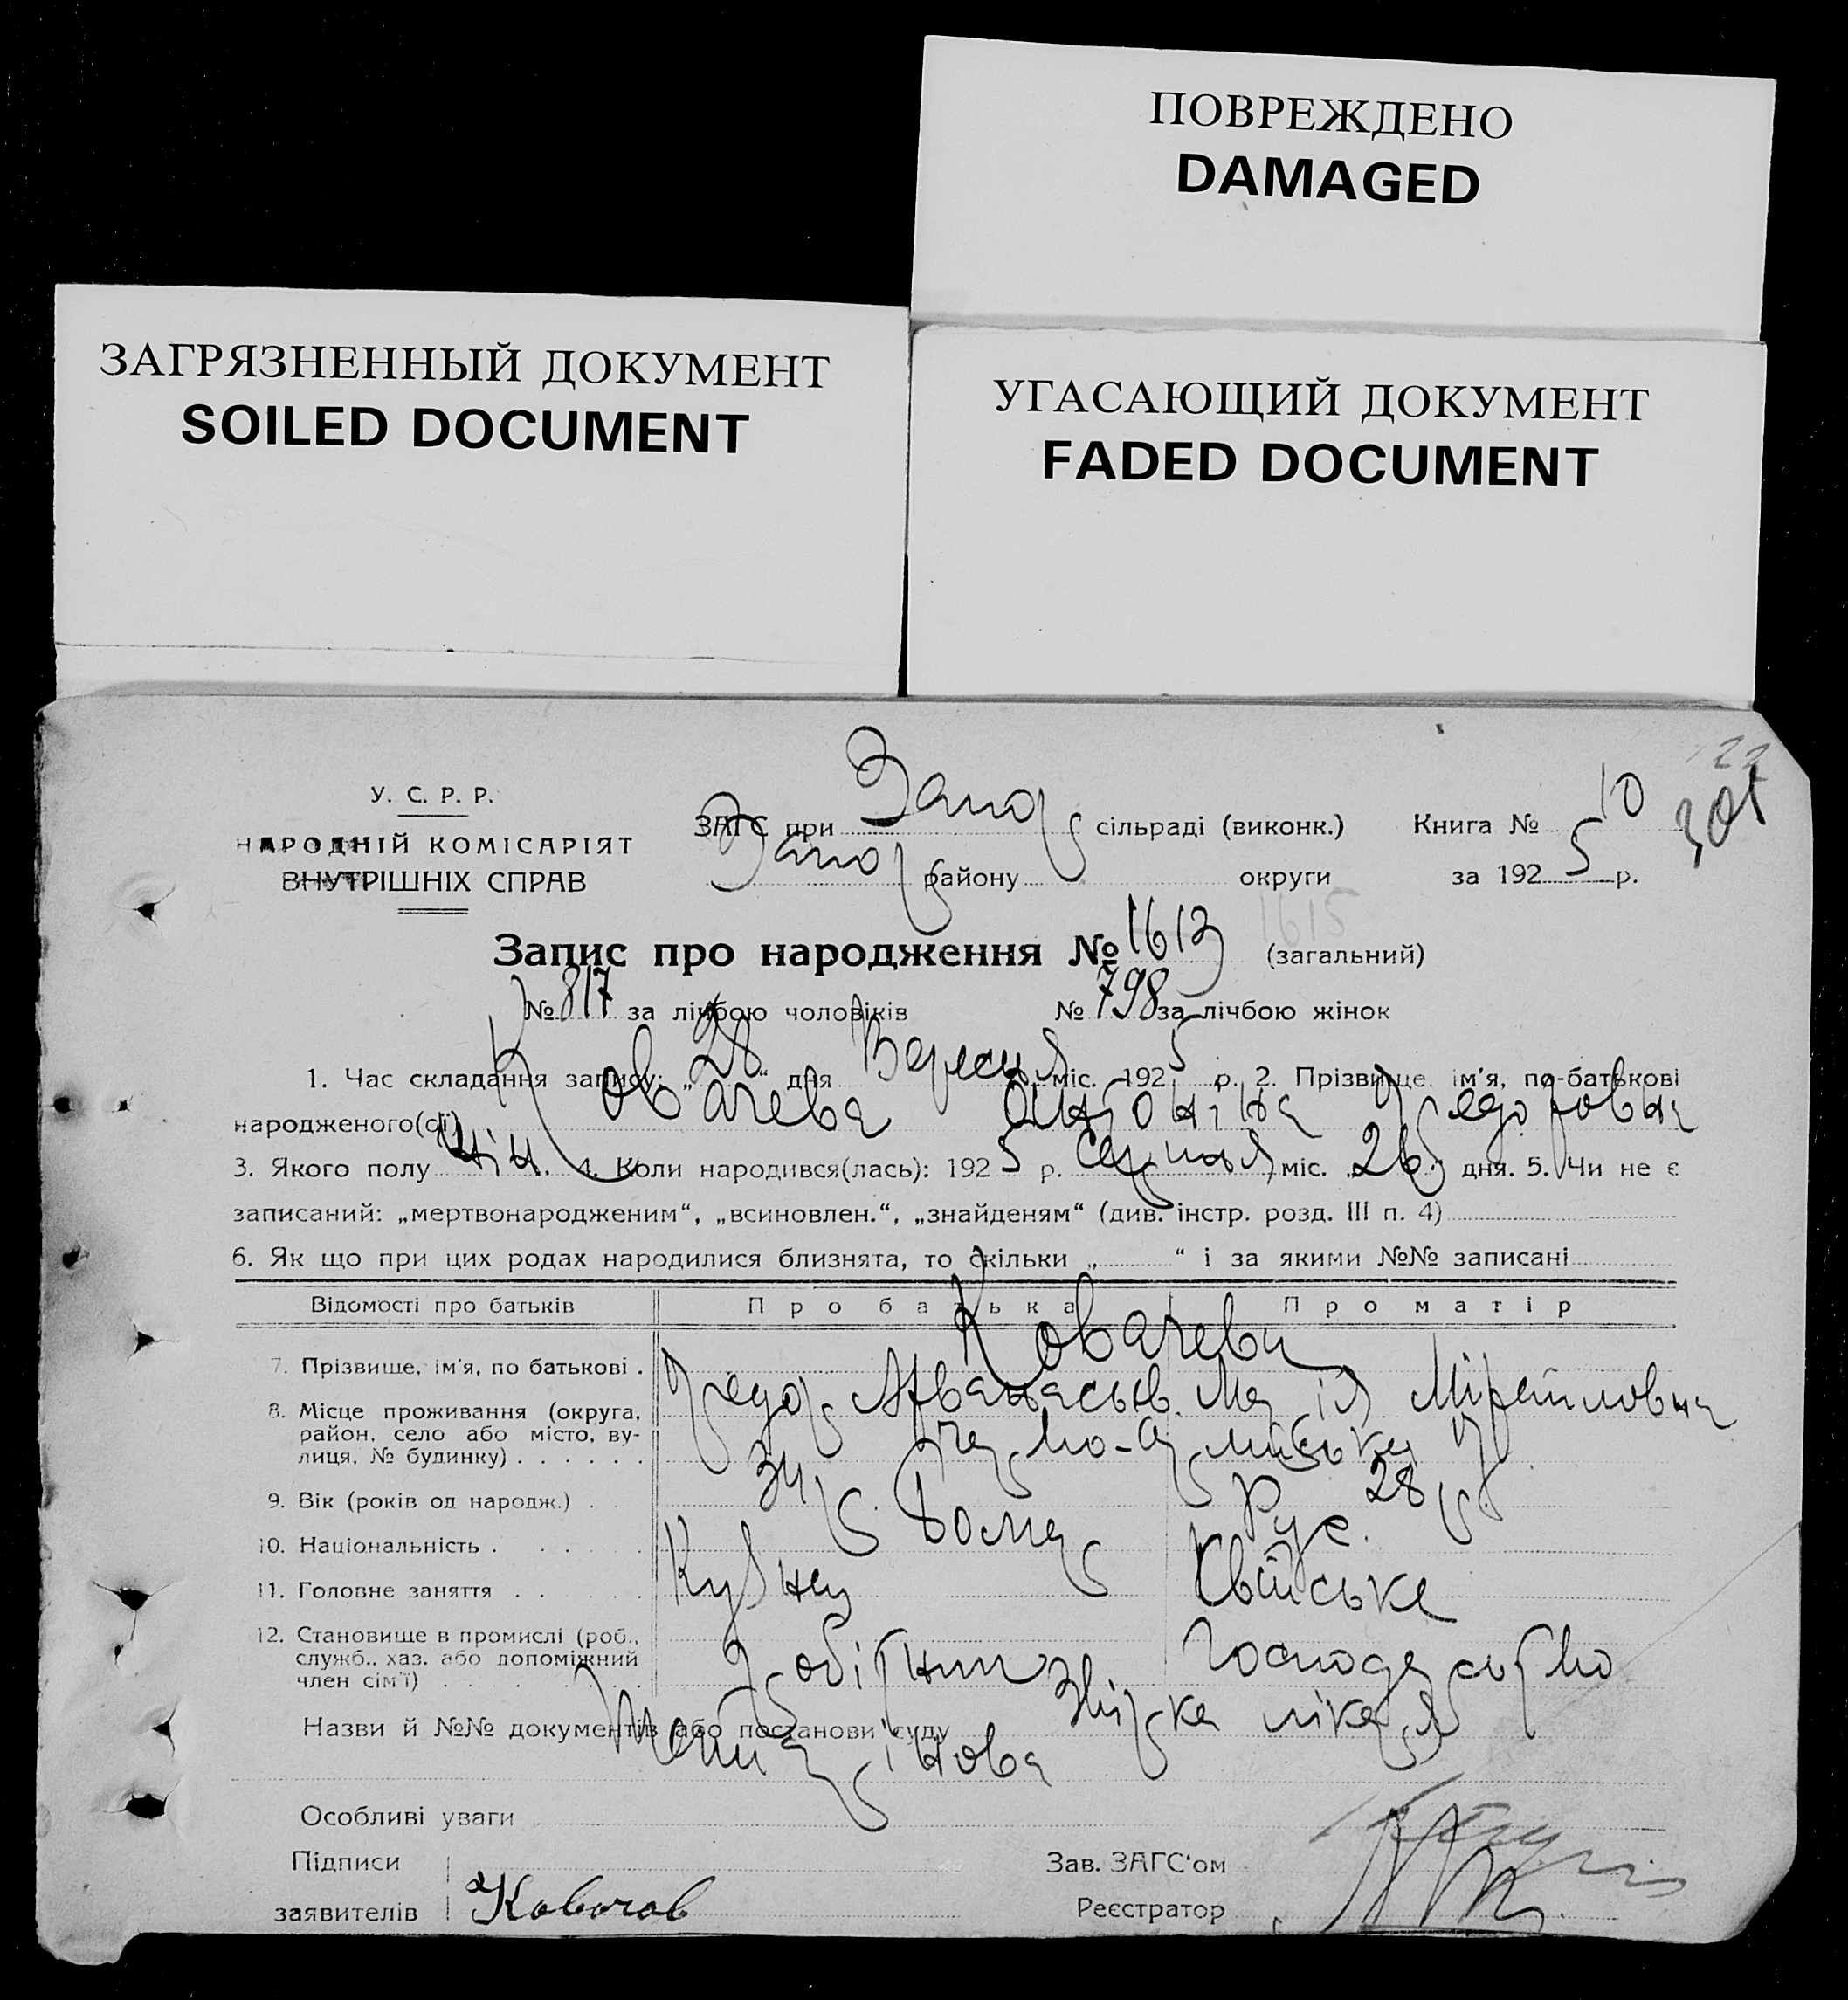 ПОВРЕЖДЕНО
DAMAGED
ЗАГРЯЗНЕННЫЙ ДОКУМЕНТ
SOILED DOCUMENT
УГАСАЮЩИЙ ДОКУМЕНТ
FADED DOCUMENT
У. С. Р. Р.
НАРОДНІЙ КОМІСАРІЯТ
ВНУТРІШНІХ СПРАВ
ЗАГС при Запор сільраді (виконк.) Книга № 10
Запор району округи за 1925 р.
Запис про народження № 1613 1615 (загальний)
№ 817 за лічбою чоловіків № 798 за лічбою жінок
1. Час складання запису: „28“ дня Вересня міс. 1925 р. 2. Прізвище, ім'я, по-батькові
народженого(ої) Ковачева Антоніна Федоровна
3. Якого полу жін. 4. Коли народився(лась): 1925 р. серпня міс. „26“ дня. 5. Чи не є
записаний: „мертвонародженим“, „всиновлен.“, „знайденям“ (див. інстр. розд. III п. 4)
6. Як що при цих родах народилися близнята, то скільки „ “ і за якими №№ записані
Відомості про батьків Про батька Про матір
Ковачеви
7. Прізвище, ім'я, по батькові . Федор Афанасьев. Марія Міхайловна
8. Місце проживання (округа,
район, село або місто, ву-
лиця, № будинку) . . . . . .
9. Вік (років од народж.) . . 34 р. 28 р.
10. Національність . Болгар Рус.
11. Головне заняття . . Кузнец Хатське
12. Становище в промислі (роб.,
служб., хаз. або допоміжний
член сім'ї) . Робітник Господарство
Назви й №№ документів або постанови суду Звірка лікаря
Особливі уваги
Підписи Зав. ЗАГС'ом
заявителів Ковачов Реєстратор